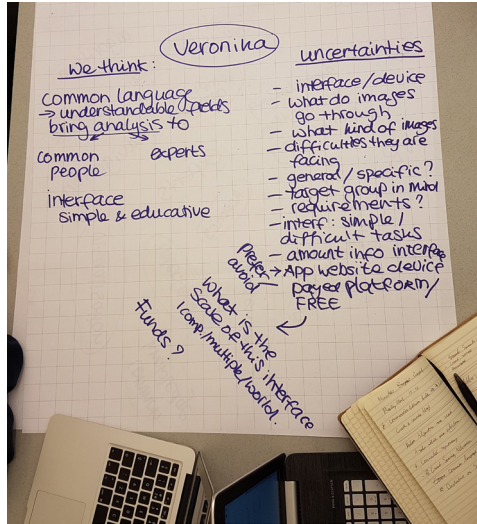 Veronika
we think:
common language
→ understandable fields
bring analysis to
common people
experts
interface
simple & educative
uncertainties
- interface/device
- what do images
go through
- what kind of images
- difficulties they are
facing
- general/specific?
- target group in mind
- requirements?
- interf: simple/
difficult tasks
- amount info interface
→ App website device
payed platform/
FREE
Prefer/
avoid
What is the
scale of this interface
1comp./multiple/world.
Funds?